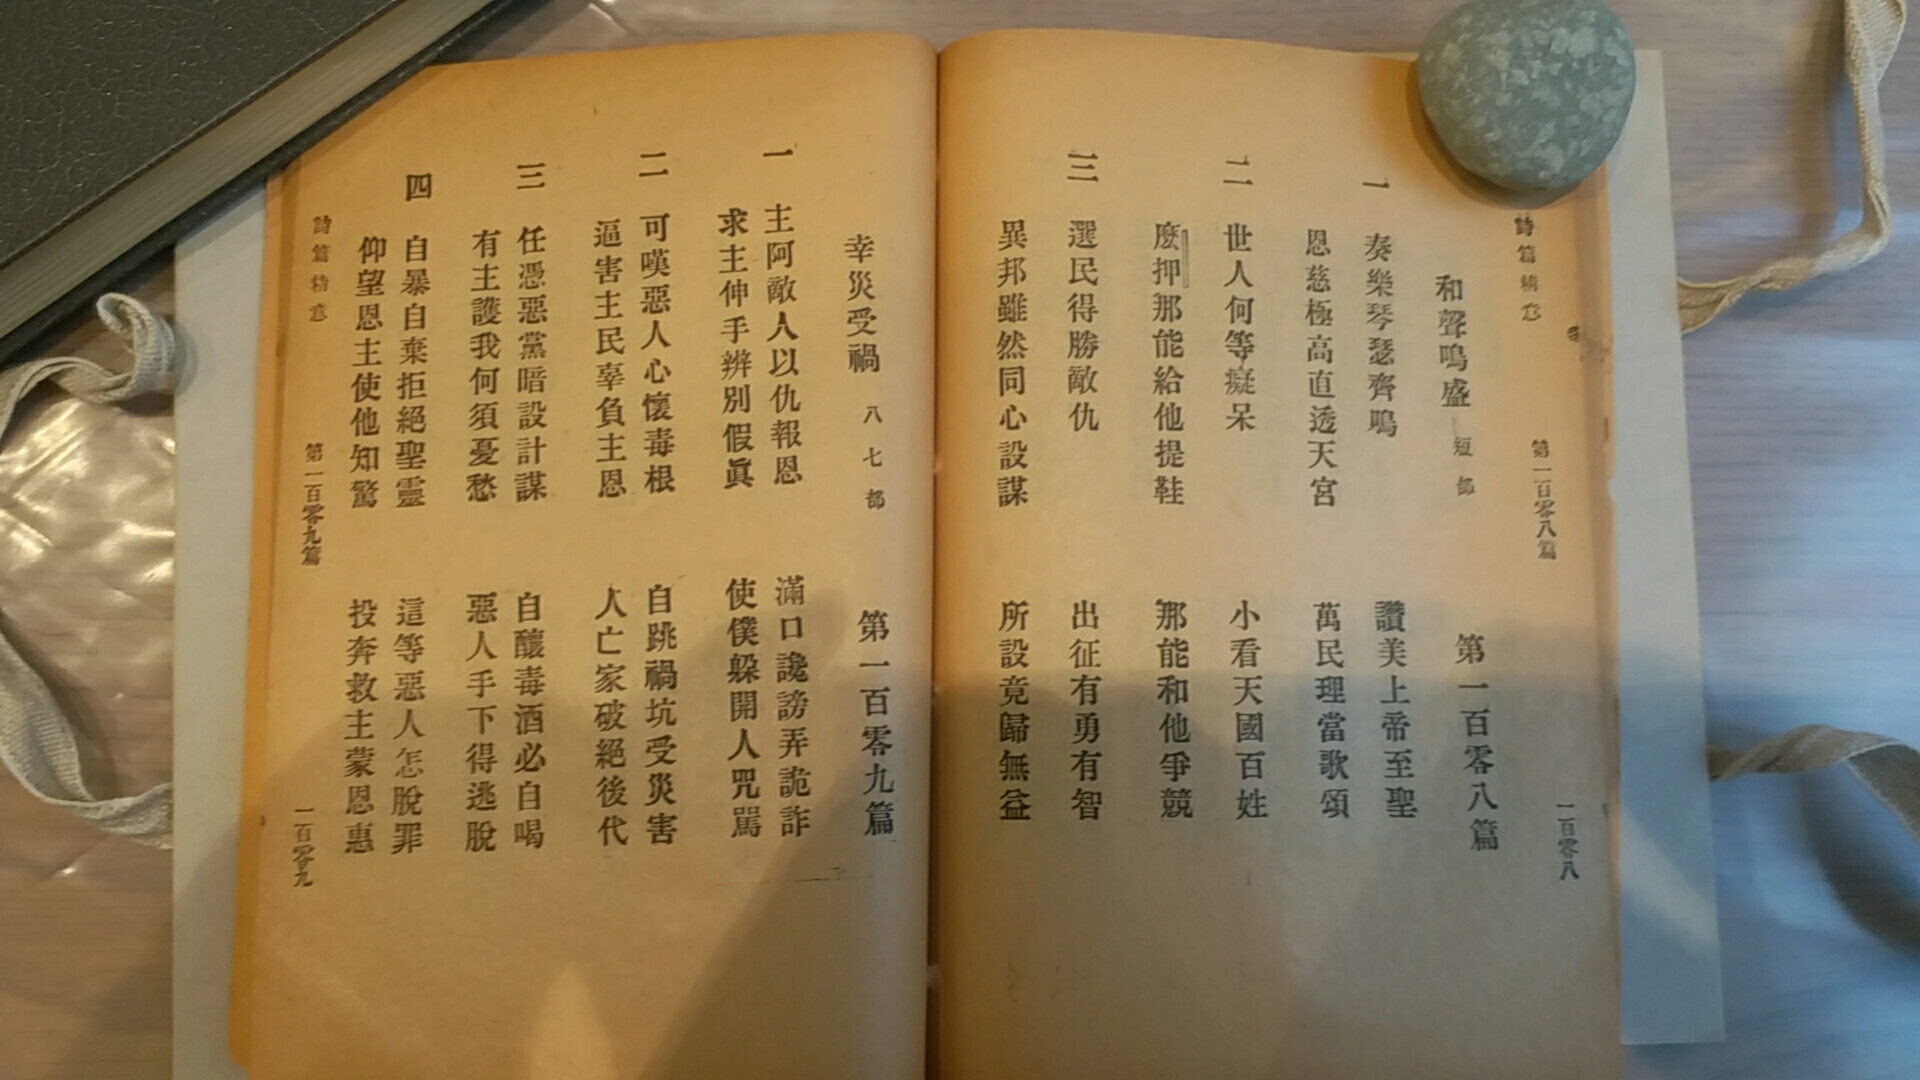 詩篇精意 第一百零八篇 一百零八
和聲鳴盛 短部 第一百零八篇
一 奏樂琴瑟齊鳴 讚美上帝至聖
恩慈極高直透天宮 萬民理當歌頌
二 世人何等癡呆 小看天國百姓
麼押那能給他提鞋 那能和他爭競
三 選民得勝敵仇 出征有勇有智
異邦雖然同心設謀 所設竟歸無益
幸災受禍 八七部 第一百零九篇
一 主阿敵人以仇報恩 滿口讒謗弄詭詐
求主伸手辨別假眞 使僕躱開人咒罵
二 可嘆惡人心懷毒根 自跳禍坑受災害
逼害主民辜負主恩 人亡家破絕後代
三 任憑惡黨暗設計謀 自釀毒酒必自喝
有主護我何須憂愁 惡人手下得逃脫
四 自暴自棄拒絕聖靈 這等惡人怎脫罪
仰望恩主使他知驚 投奔救主蒙恩惠
詩篇精意 第一百零九篇 一百零九